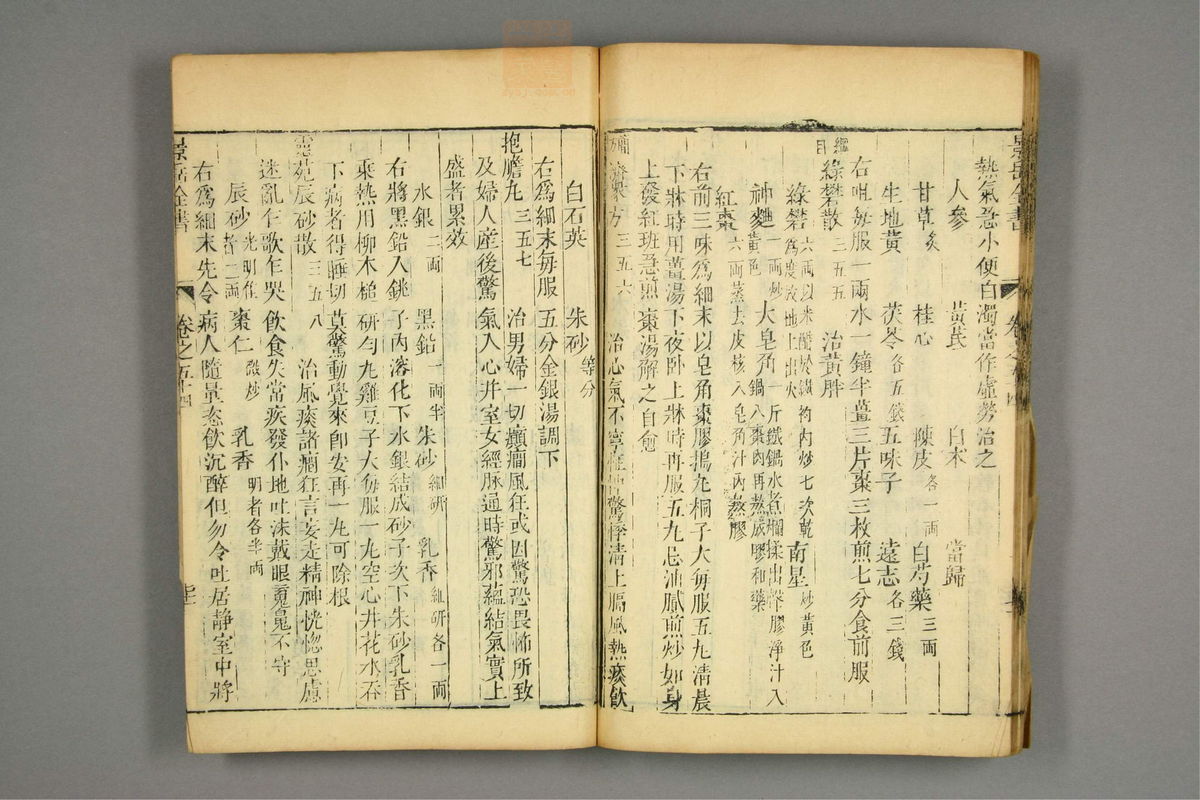 景岳全書 卷之五十四
熱氣急小便白濁當作虛勞治之
人參 黃芪 白朮 當歸
甘草炙 桂心 陳皮各一兩 白芍藥三兩
生地黃 茯苓各五錢 五味子 遠志各三錢
右㕮每服一兩水一鐘半薑三片棗三枚煎七分食前服
綠礬散三五五 治黃胖
綠礬六兩以米醋於鐵杓內炒七次乾為度放地上出火 南星炒黃色
神麯一兩炒黃色 大皂角一斤鐵鍋水煮爛揉出滓膠淨汁入鍋入棗肉再熬成膠和藥
紅棗六兩蒸去皮核入皂角汁內熬膠
右前三味為細末以皂角棗膠搗丸桐子大每服五丸清晨
下牀時用薑湯下夜卧上牀時再服五丸忌油膩煎炒如身
上發紅班急煎棗湯解之自愈
三五六 治心氣不寧怔忡驚悸清上膈風熱痰飲
白石英 朱砂等分
右為細末每服五分金銀湯調下
抱膽丸三五七 治男婦一切癲癇風狂或因驚恐畏怖所致
及婦人產後驚氣入心并室女經脉通時驚邪蘊結氣實上
盛者累效
水銀二兩 黑鉛一兩半 朱砂細研 乳香細研各一兩
右將黑鉛入銚子內溶化下水銀結成砂子次下朱砂乳香
乘熱用柳木槌研勻丸雞豆子大每服一丸空心井花水吞
下病者得睡切莫驚動覺來即安再一丸可除根
靈苑辰砂散三五八 治風痰諸癇狂言妄走精神恍惚思慮
迷亂乍歌乍哭飲食失常疾發仆地吐沫戴眼魂魄不守
辰砂光明佳者二兩 棗仁微炒 乳香明者各半兩
右為細末先令病人隨量恣飲沉醉但勿令吐居静室中將
景岳全書 卷之五十四